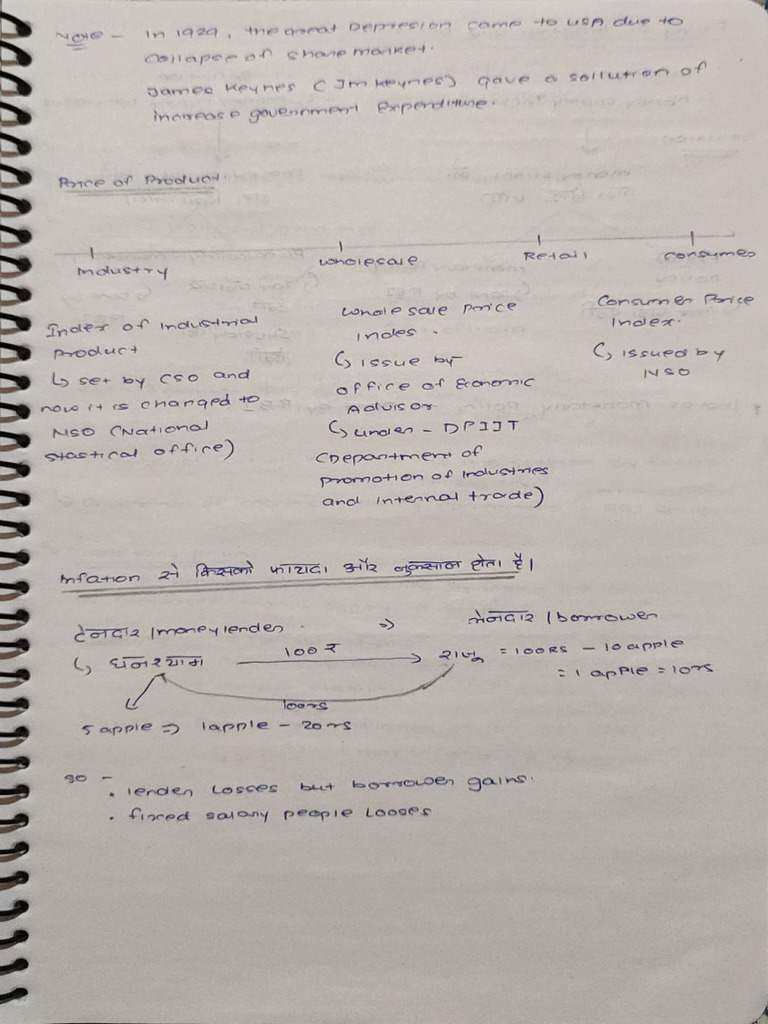 Note - In 1929, the great Depression came to USA due to
collapse of share market.
James Keynes (JM Keynes) gave a sollution of
increase government Expenditure.
Price of Product.
Industry
wholesale
Retail
consumer
Index of Industrial
Product
↳ set by CSO and
now it is changed to
NSO (National
Stastical office)
Whole sale price
Index.
↳ issue by
office of Economic
Advisor
↳ under - DPIIT
(Department of
promotion of Industries
and Internal trade)
Consumer Price
Index.
↳ issued by
NSO
Infation से किसको फायदा और नुकसान होता है।
देनदार / moneylender. ⇒ लेनदार / borrower
↳ घनश्याम 100₹ → राजू = 100RS - 10 apple
= 1 apple = 10rs
100rs
5 apple ⇒ 1 apple - 20rs
so -
. lender Losses but borrower gains.
. fixed salary people Looses